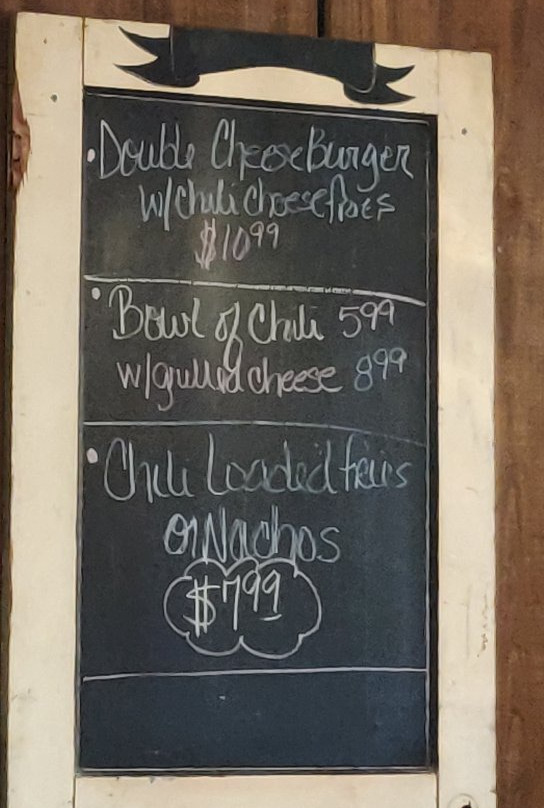 • Double CheeseBurger
w/Chili cheese fries
$10.99
• Bowl of Chili 5.99
w/grilled cheese 8.99
• Chili Loaded fries
or Nachos
$7.99